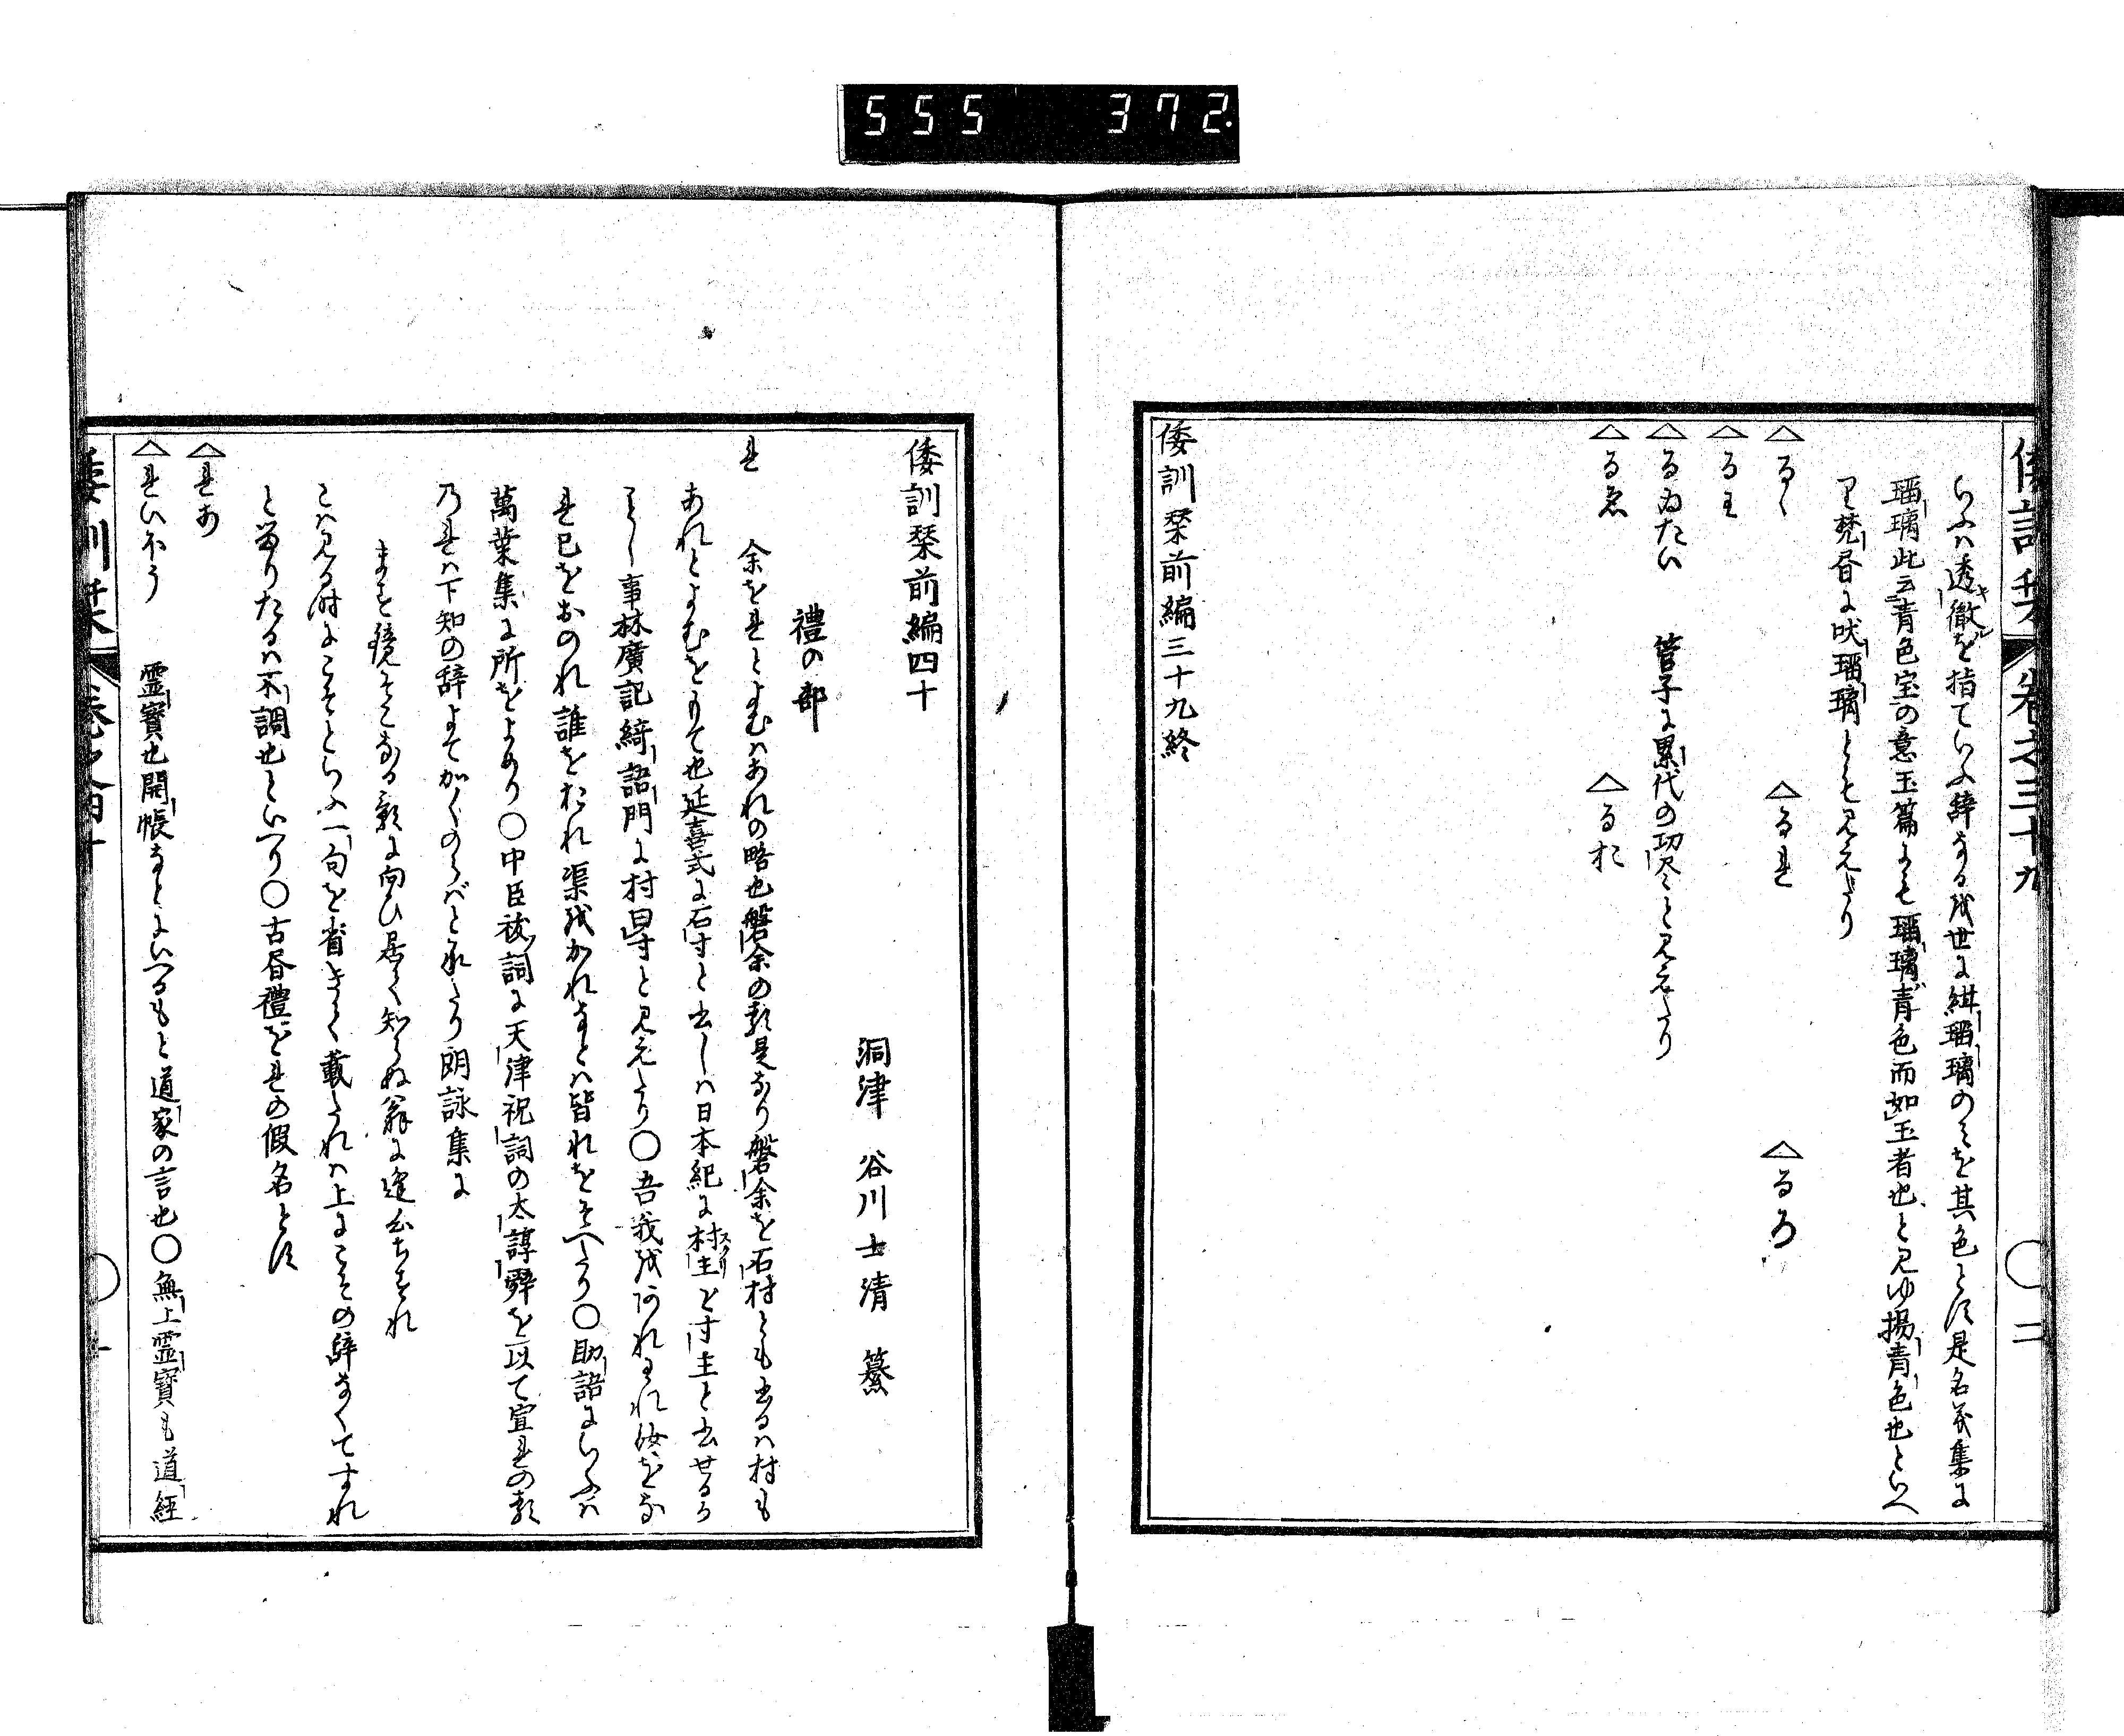 555 372.
倭訓栞 卷之三十九 二
らふハ透徹を指ていふ辞なる成世に紺瑠璃のミを其色とす是名義集に
瑠璃此云青色宝の意玉篇にも瑠璃青色而如玉者也と見ゆ揚青色也といへ
り梵書に吠瑠璃とも見えたり
△るく △るれ △るろ
△るわ
△るゐたい 管子に累代の功尽と見えたり
△るゑ △るお
倭訓栞前編三十九終
倭訓栞前編四十
洞津 谷川士清 纂
禮の部
れ 余をれとよむハあれの略也磐余の類是なり磐余を石村とも書るハ村も
あれとよむをもて也延喜式に石寸と書しハ日本紀に村主を寸主と書せるか
ことし事林廣記綺語門に村曰寸と見えたり〇吾我をわれ汝をな
れ己をおのれ誰をたれ渠をかれなとハ皆れをそへたり〇助語にいふハ
萬葉集に所をよめり〇中臣祓詞に天津祝詞の太諄辞を以て宣れの類
乃れハ下知の辞よてかくのらバと承たり朗詠集に
ます鏡そこなる影に向ひ居て知らぬ翁に逢心ちすれ
こハ見る時にこそといふ一句を省きて載たれハ上にこその辞なくてすれ
と留りたるハ不調也といへり〇古書禮をれの假名とす
△れあ
△れいほう 霊寶也開帳なとにいへるもと道家の言也〇無上霊寶も道経
倭訓栞 卷之四十 一